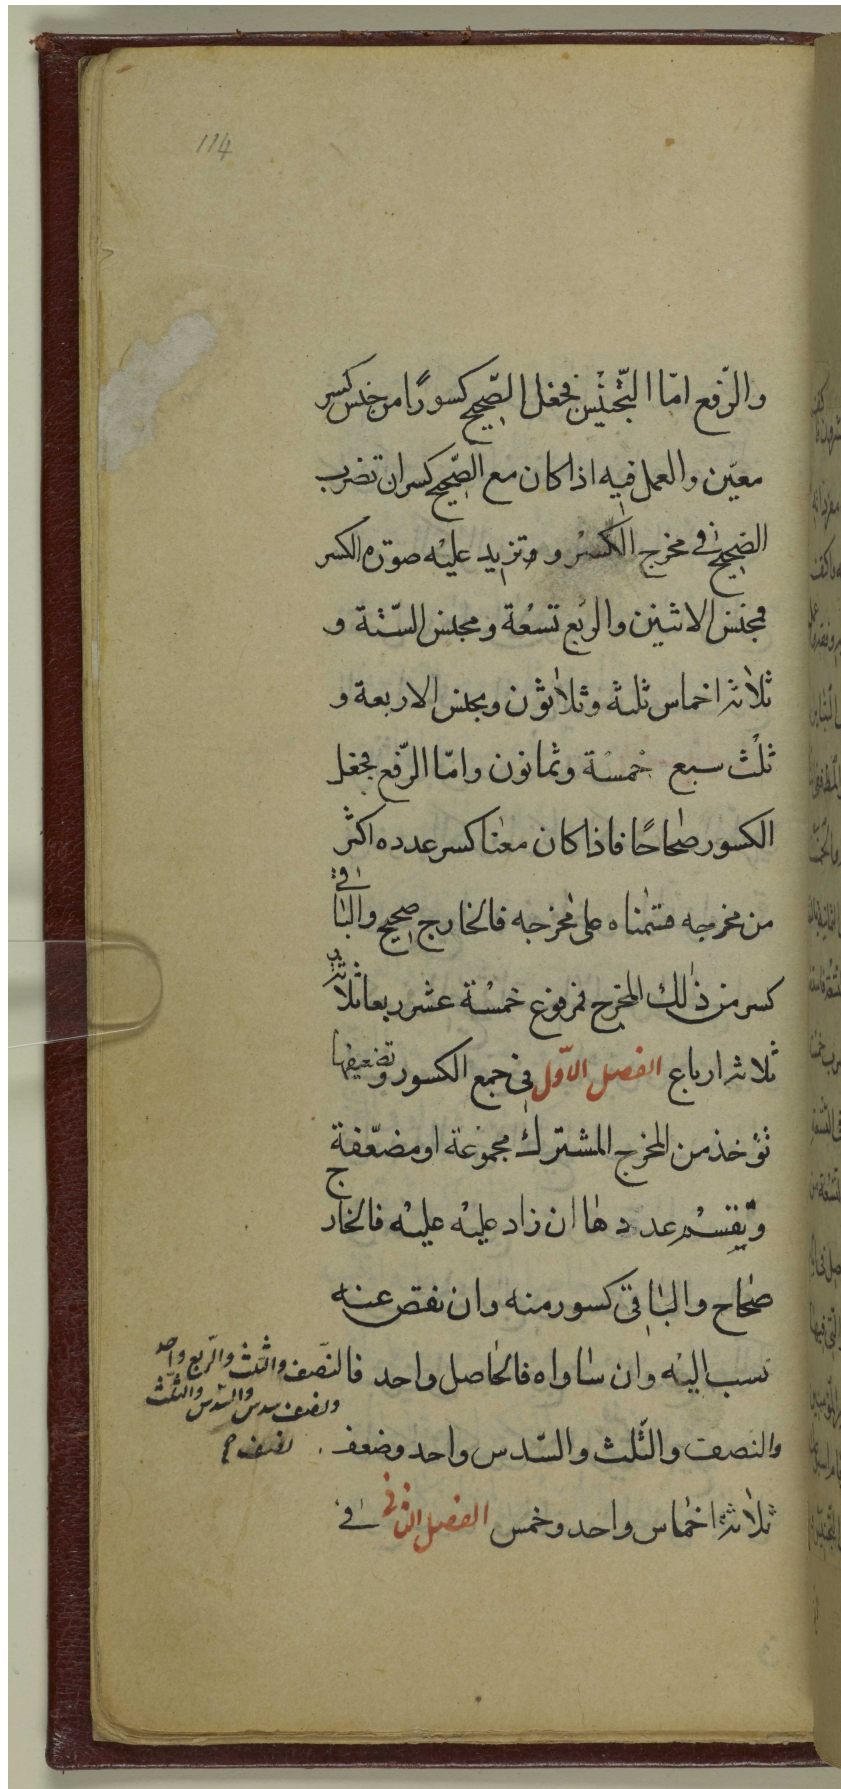 114
والرّفع امّا التّجنيس فجعل الصّحيح كسورًا من جنس كسر
معيّن والعمل فيه اذا كان مع الصّحيح كسر ان تضرب
الصّحيح في مخرج الكسر و وتزيد عليه صورة الكسر
فمجنس الاثنين والربع تسعة ومجنس الستّة و
ثلاثة اخماس ثلثة وثلاثون ومجنس الاربعة و
ثلث سبع خمسة وثمانون وامّا الرّفع فجعل
الكسور صحاحًا فاذا كان معنا كسر عدده اكثر
من مخرجه قسمناه على مخرجه فالخارج صحيح والباقي
كسر من ذلك المخرج فمرفوع خمسة عشر ربعا ثلاثة
ثلاثة ارباع الفصل الاوّل في جمع الكسور وتضعيفها
تؤخذ من المخرج المشترك مجموعة او مضعّفة
ويقسم عددها ان زاد عليه عليه فالخارج
صحاح والباقي كسور منه وان نقص عنه
نسب اليه وان ساواه فالحاصل واحد فالنّصف والثلث والرّبع واحد
ونصف سدس والسّدس والثلث
نصف
والنصف والثّلث والسّدس واحد وضعف
ثلاثة اخماس واحد وخمس الفصل الثاني في